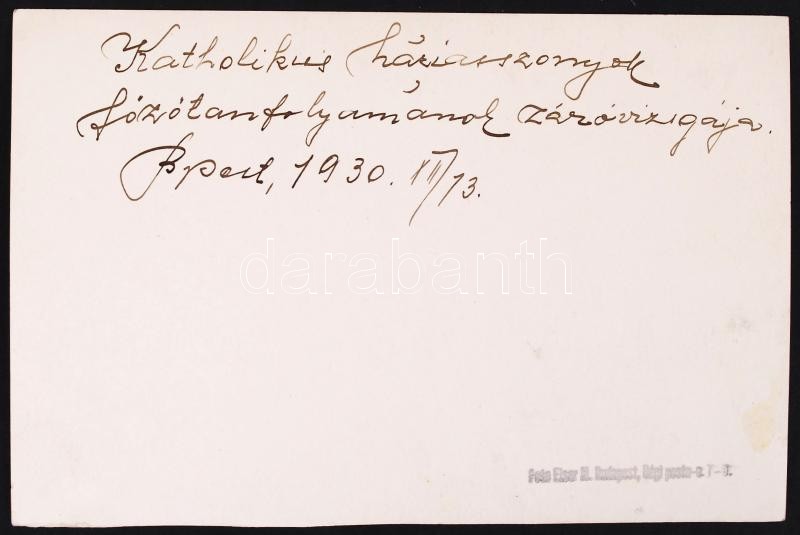 Katholikus háziasszonyok
főzőtanfolyamának záróvizsgája.
Bpest, 1930. XII/13.
darabanth
Foto Elser M. Budapest, Régi posta-u. 7-9.